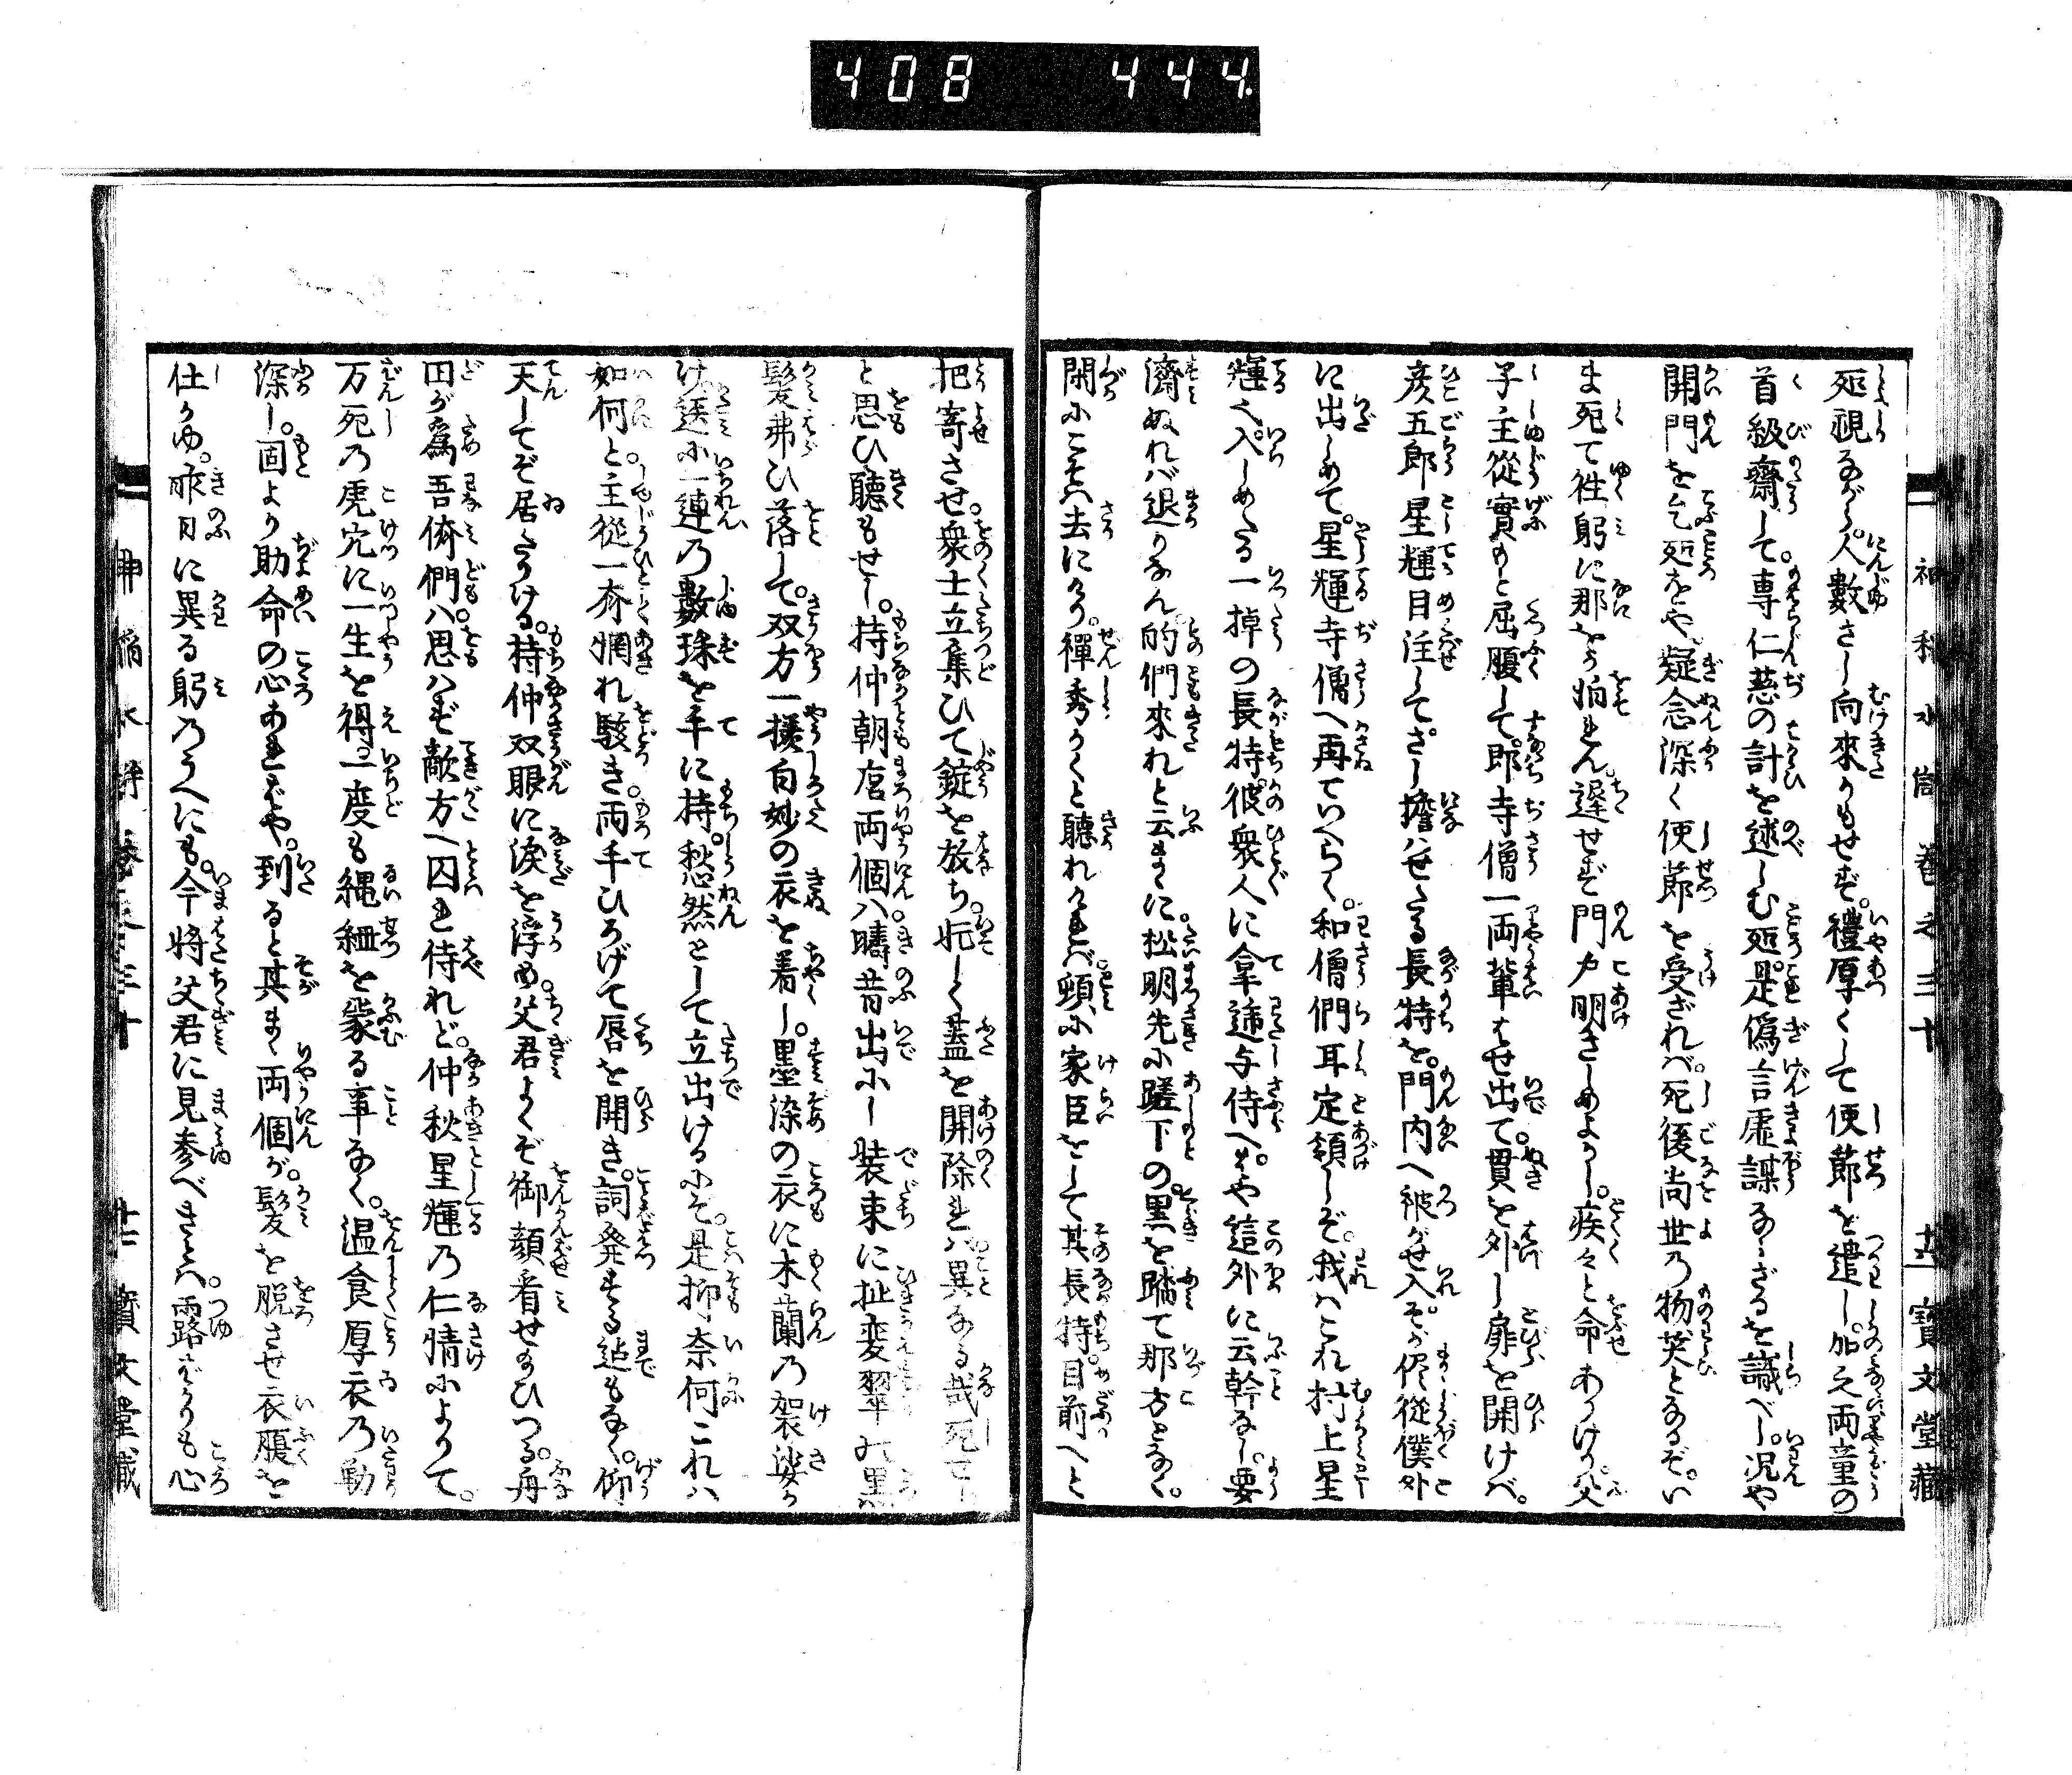 408 444.
死視ながら。人數さし向來りもせず。禮厚くして使節を遣し。加之両童の
首級齋して。専仁慈の計を述しむ。是偽言虚謀ならざるを識べし。况や
開門を乞処をや。疑念深く使節を受ざれバ。死後尚世の物笑となるぞ。い
ま死て往躬に那をか怕れん。遅せず門戸明きしめよかし。疾々と命ありけり。父
子主從實もと屈腹して。即寺僧一両輩はせ出て。貫を外し扉を開けバ。
彦五郎星輝目注してさし擔ハせたる長持を。門内へ被がせ入。そが侭從僕外
に出しめて。星輝寺僧へ再ていへらく。和僧們耳定頷しぞ。我ハこれ村上星
輝へ入しめたる一掉の長持。彼衆人に拿逓与侍へ。はや這外に云幹なし。要
濟ぬれバ退りなん。的們來れと云まゝに。松明先に蹉下の黒を踏て那方となく。
閉にこそハ去にけり。禪秀かくと聽れけれバ。頓に家臣をして其長持。目前へと
把寄させ。衆士立集ひて錠を放ち。蓋を開除れバ異なる哉死
と思ひ聽もせし。持仲朝房両個ハ。疇昔出にし装束に扯変翠の黒
髪弗ひ落して。双方一様白妙の衣を着し。墨染の衣に木蘭の架裟
け。送に一連の數珠を手に持。愁然として立出けるにぞ。是抑奈何これハ
如何と。主從一齊惘れ駭き。両手ひろげて唇を開き。詞発する迠もなく。仰
天してぞ居たりける。持仲双眼に涙を浮め。父君よくぞ御顔看せ給ひつる。舟
田が爲吾儕們ハ。思ハず敵方へ囚れ侍れど。仲秋星輝の仁情によりて。
万死の虎穴に一生を得。一度も縄紲を蒙る事なく。温食厚衣の勤
深し。固より助命の心あれバや。到ると其まゝ両個が。髪を脱させ衣腹を
仕かゆ。昨日に異る躬のうへにも。今将父君に見参べきとハ。露ばかりも心